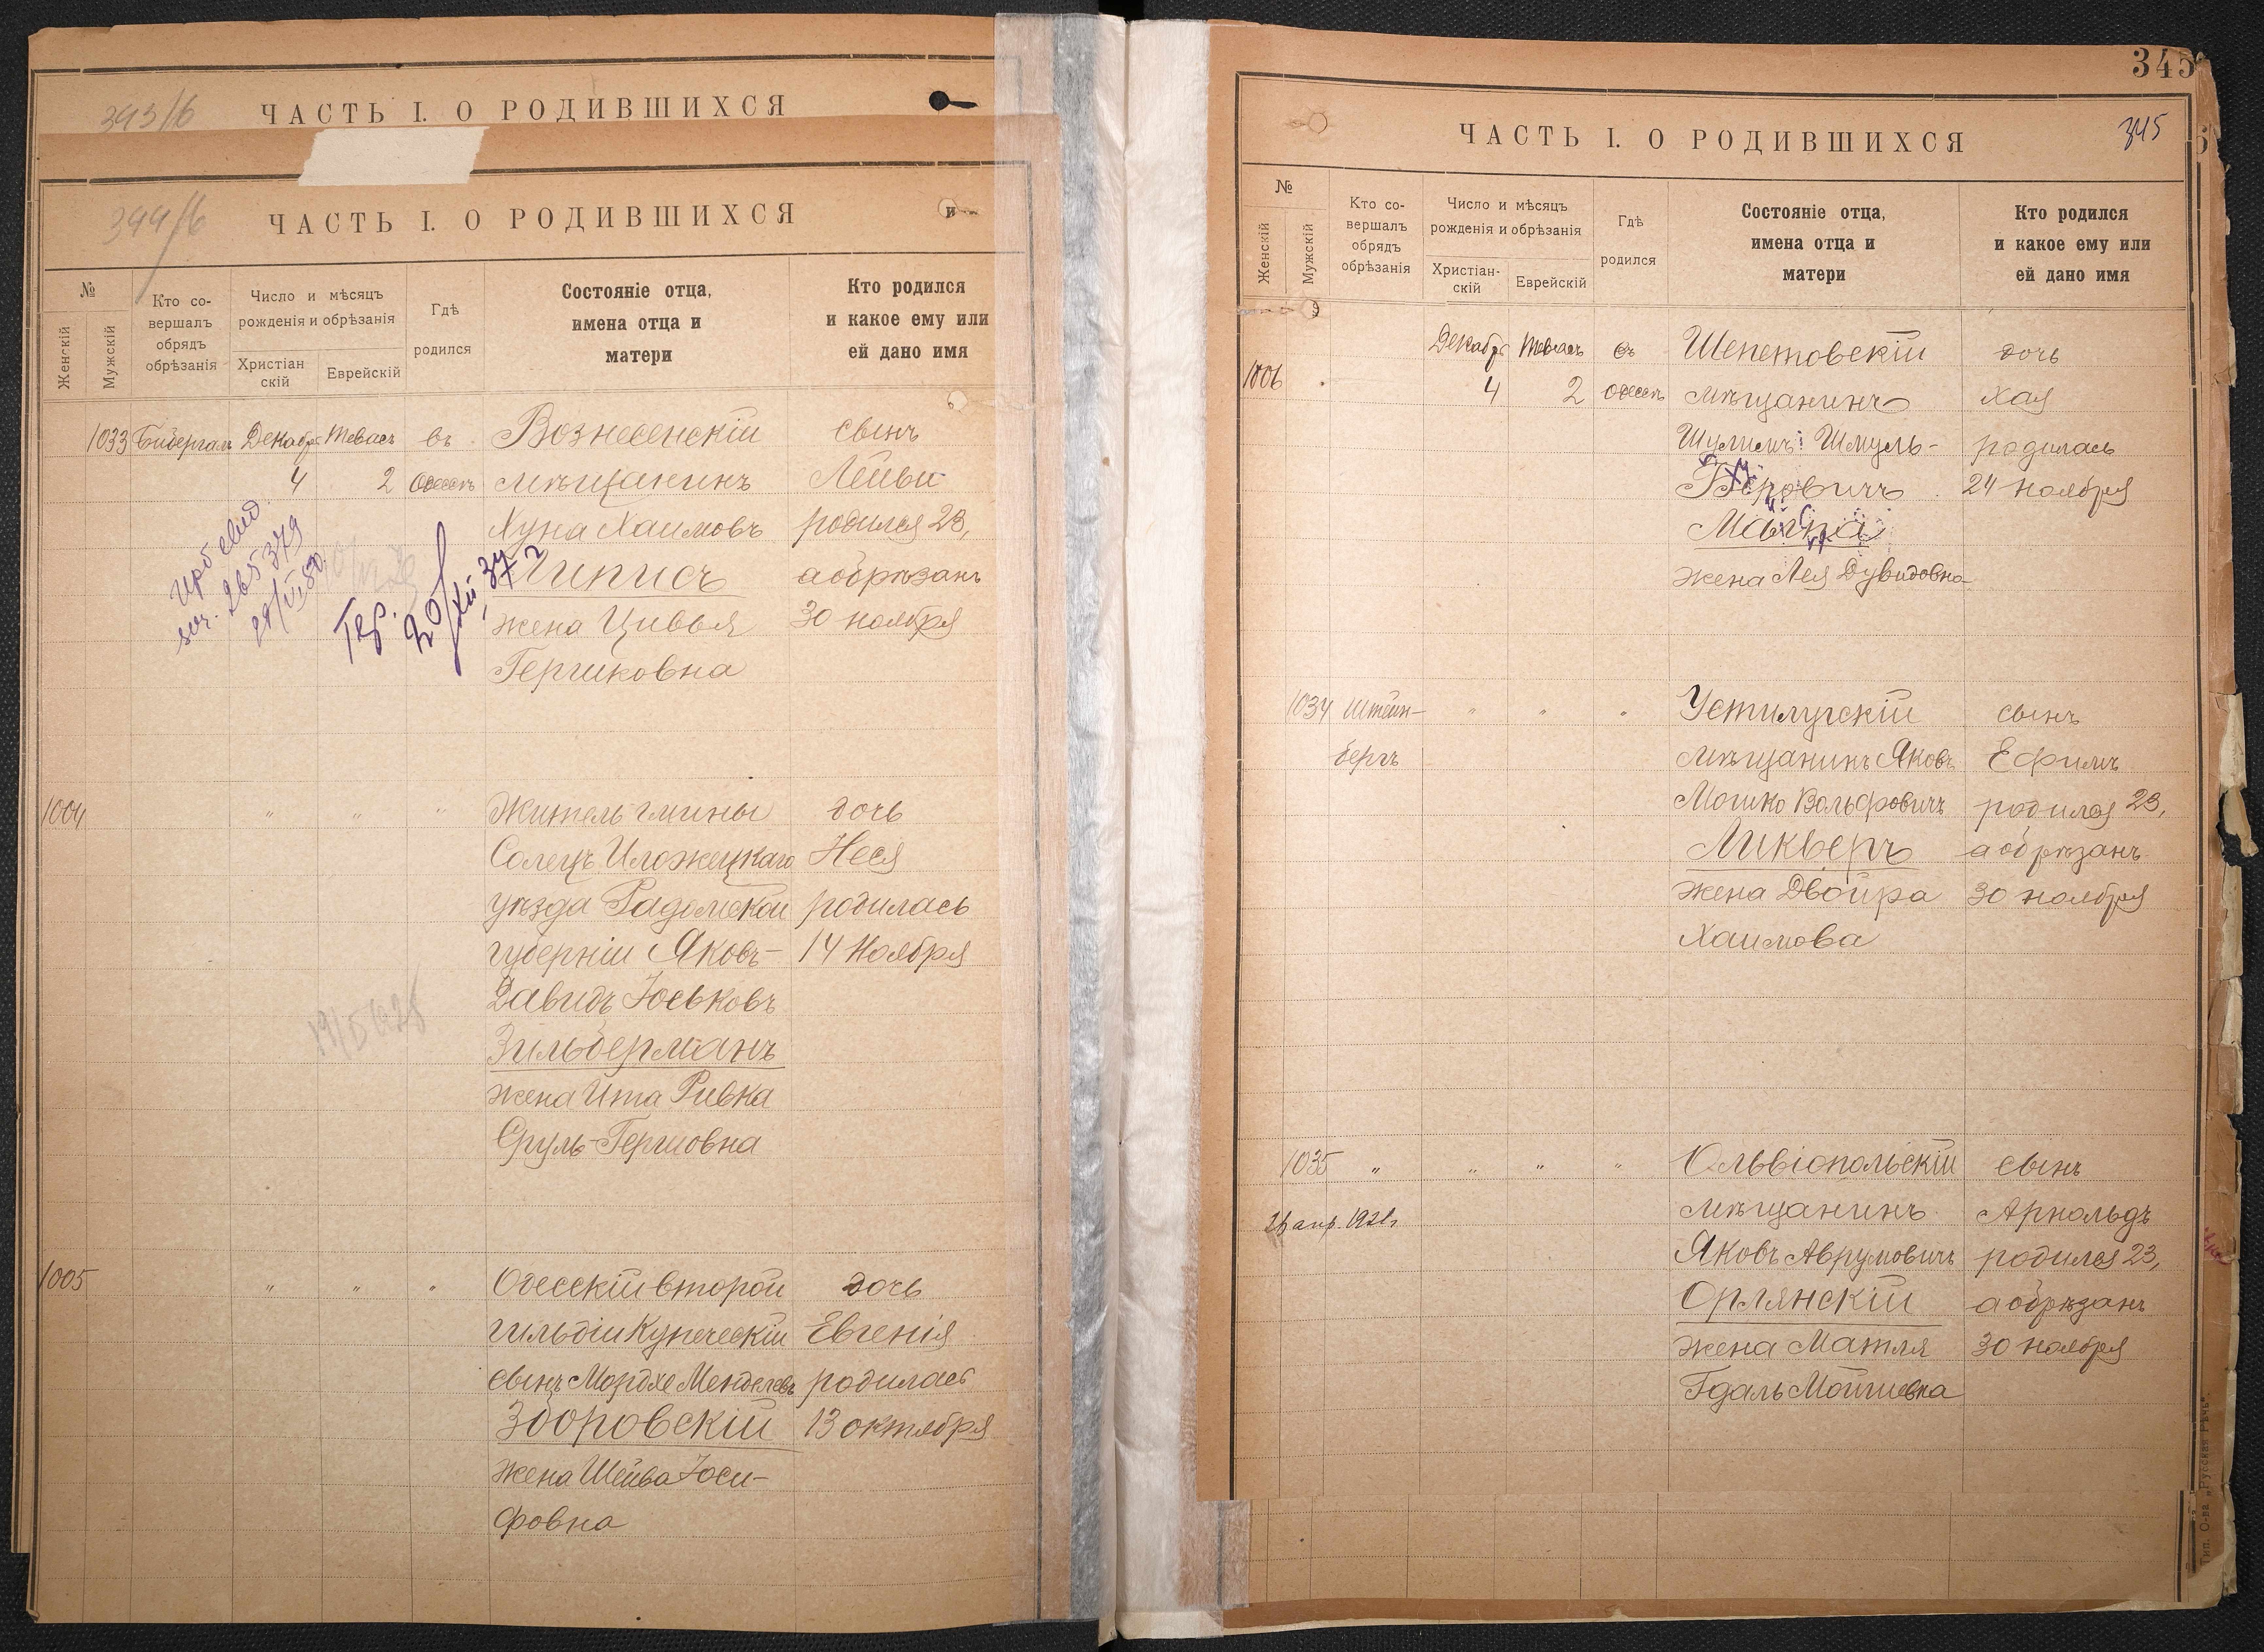 393/б
ЧАСТЬ I. О РОДИВШИХСЯ
394/б
ЧАСТЬ I. О РОДИВШИХСЯ
и
№
Женскій
Мужскій
Кто со-
вершалъ
обрядъ
обрѣзанія
Число и мѣсяцъ
рожденія и обрѣзанія
Христіан
скій
Еврейскій
Гдѣ
родился
Состояніе отца,
имена отца и
матери
Кто родился
и какое ему или
ей дано имя
1033 Бибергалъ Декабрь Тевасъ въ Вознесенскій сынъ
4 2 Одессѣ мѣщанинъ Лейви
Хуна Хаимовъ родился 23,
а обрѣзанъ
жена Цивья 30 ноября
Гершковна
20/XII-37 г
1004 " " " Житель гмины дочь
Солецъ Иложецкаго Неся
уѣзда Радомской родилась
губерніи Яковъ- 14 Ноября
Давидъ Іоськовъ
Зильберманъ
жена Ита Ривка
Сруль-Гершовна
1005 " " " Одесскій второй дочь
гильдіи Купеческій Евгенія
сынъ Мордхе Менделевъ родилась
Зборовскій 13 октября
жена Шейва Іоси-
фовна
345
345
ЧАСТЬ I. О РОДИВШИХСЯ
№
Женскій
Мужскій
Кто со-
вершалъ
обрядъ
обрѣзанія
Число и мѣсяцъ
рожденія и обрѣзанія
Христіан-
скій
Еврейскій
Гдѣ
родился
Состояніе отца,
имена отца и
матери
Кто родился
и какое ему или
ей дано имя
1006 Декабрь Тевасъ въ Шепетовскій дочь
4 2 Одессѣ мѣщанинъ Хая
Шулимъ Шмуль- родилась
Беровичъ 24 ноября
жена Лея Дувидовна
1034 Штейн- " " " Устилугскій сынъ
бергъ мѣщанинъ Яковъ Ефимъ
Мошко Вольфовичъ родился 23,
Ликверъ а обрѣзанъ
жена Двойра 30 ноября
Хаимова
1035 " " " " Ольвіопольскій сынъ
26 апр. мѣщанинъ Арнольдъ
Яковъ Аврумовичъ родился 23,
Орлянскій а обрѣзанъ
жена Матля 30 ноября
Гдаль Мошшевна
Тип. О-ва „Русская Рѣчь".